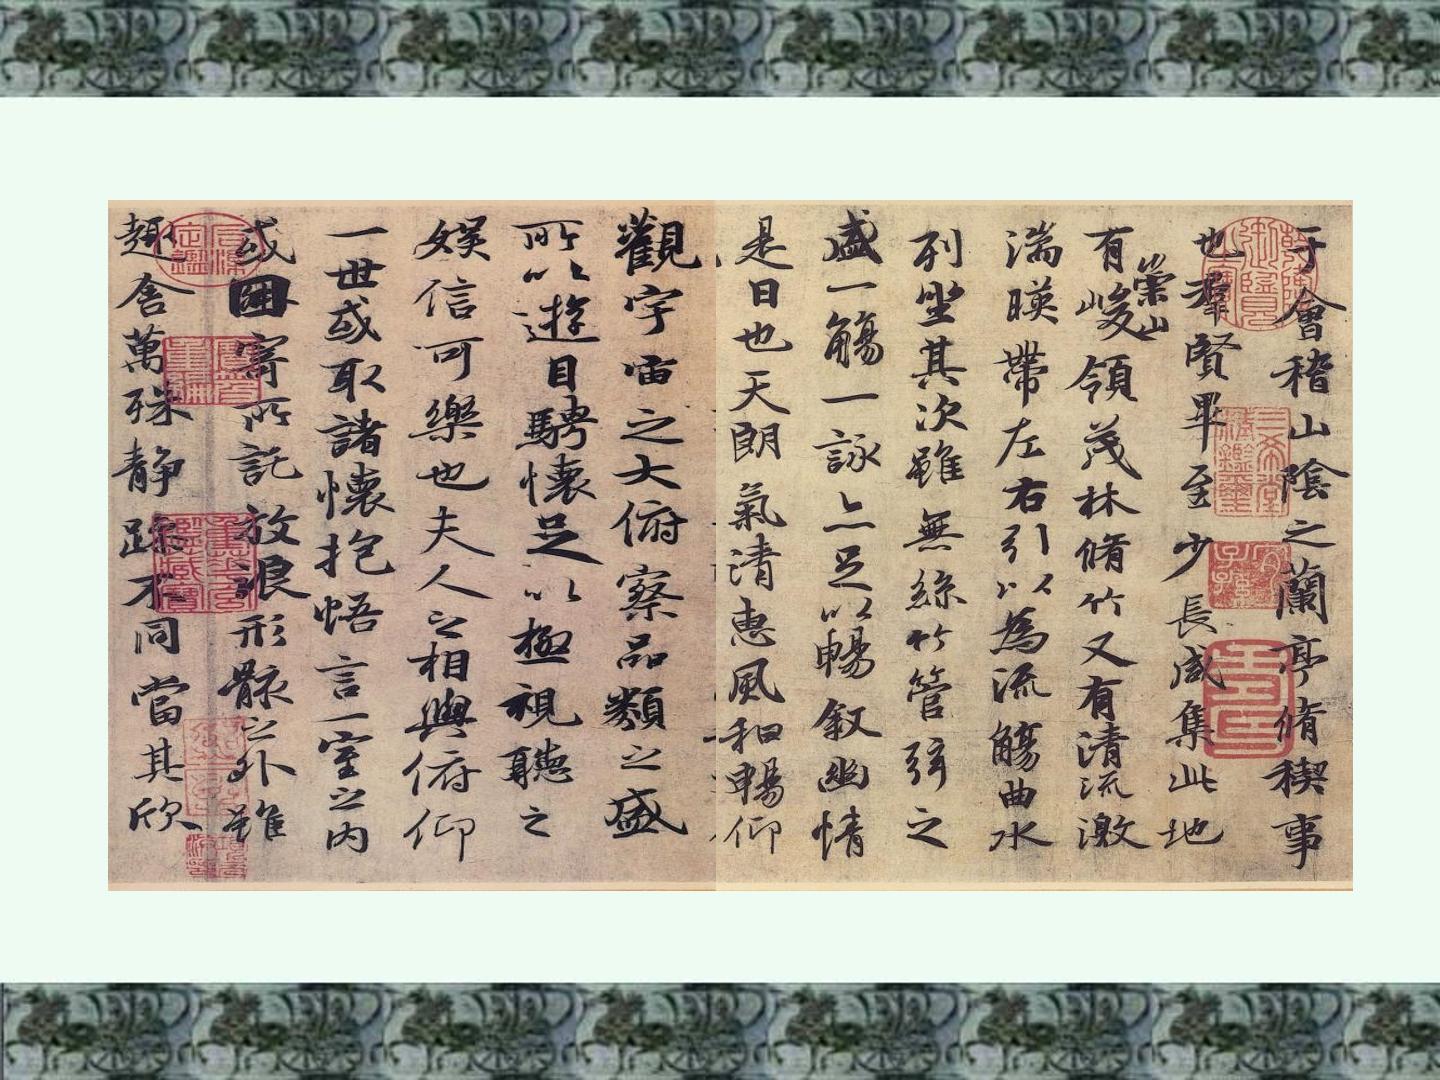 于會稽山陰之蘭亭脩稧事
也羣賢畢至少長咸集此地
有崇山峻領茂林脩竹又有清流激
湍暎帶左右引以為流觴曲水
列坐其次雖無絲竹管弦之
盛一觴一詠亦足以暢叙幽情
是日也天朗氣清惠風和暢仰
觀宇宙之大俯察品類之盛
所以遊目騁懷足以極視聽之
娛信可樂也夫人之相與俯仰
一世或取諸懷抱悟言一室之内
或因寄所託放浪形骸之外雖
趣舍萬殊静躁不同當其欣
三希堂精鑑璽
宜子孫